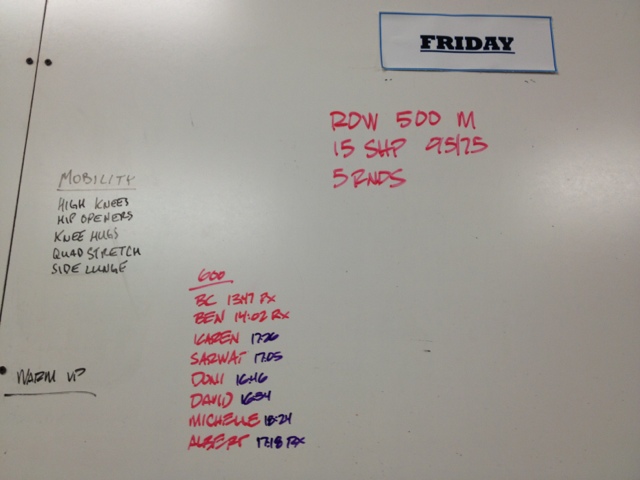 FRIDAY
ROW 500 M
15 SHP 95/75
5 RNDS
MOBILITY
HIGH KNEES
HIP OPENERS
KNEE HUGS
QUAD STRETCH
SIDE LUNGE
WARM UP
600
BC 13:47 RX
BEN 14:02 RX
KAREN 17:26
SARWAT 17:05
DONI 16:46
DAVID 16:54
MICHELLE 18:24
ALBERT 17:18 RX